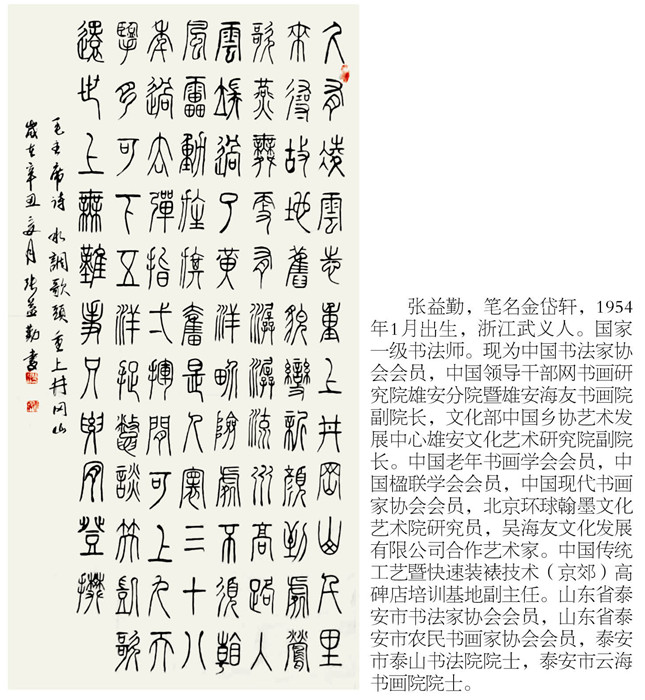 久有凌雲志重上井岡山千里
來尋故地舊貌變新顏到處鶯
歌燕舞更有潺潺流水高路入
雲端過了黃洋界險處不須看
風雷動旌旗奮是人寰三十八
年過去彈指一揮間可上九天
攬月可下五洋捉鱉談笑凱歌
還世上無難事只要肯登攀
毛主席诗 水調歌頭 重上井冈山
歲在辛丑 月 張益勤書
张益勤，笔名金岱轩，1954
年1月出生，浙江武义人。国家
一级书法师。现为中国书法家协
会会员，中国领导干部网书画研
究院雄安分院暨雄安海友书画院
副院长，文化部中国乡协艺术发
展中心雄安文化艺术研究院副院
长。中国老年书画学会会员，中
国楹联学会会员，中国现代书画
家协会会员，北京环球翰墨文化
艺术院研究员，吴海友文化发展
有限公司合作艺术家。中国传统
工艺暨快速装裱技术（京郊）高
碑店培训基地副主任。山东省泰
安市书法家协会会员，山东省泰
安市农民书画家协会会员，泰安
市泰山书法院院士，泰安市云海
书画院院士。